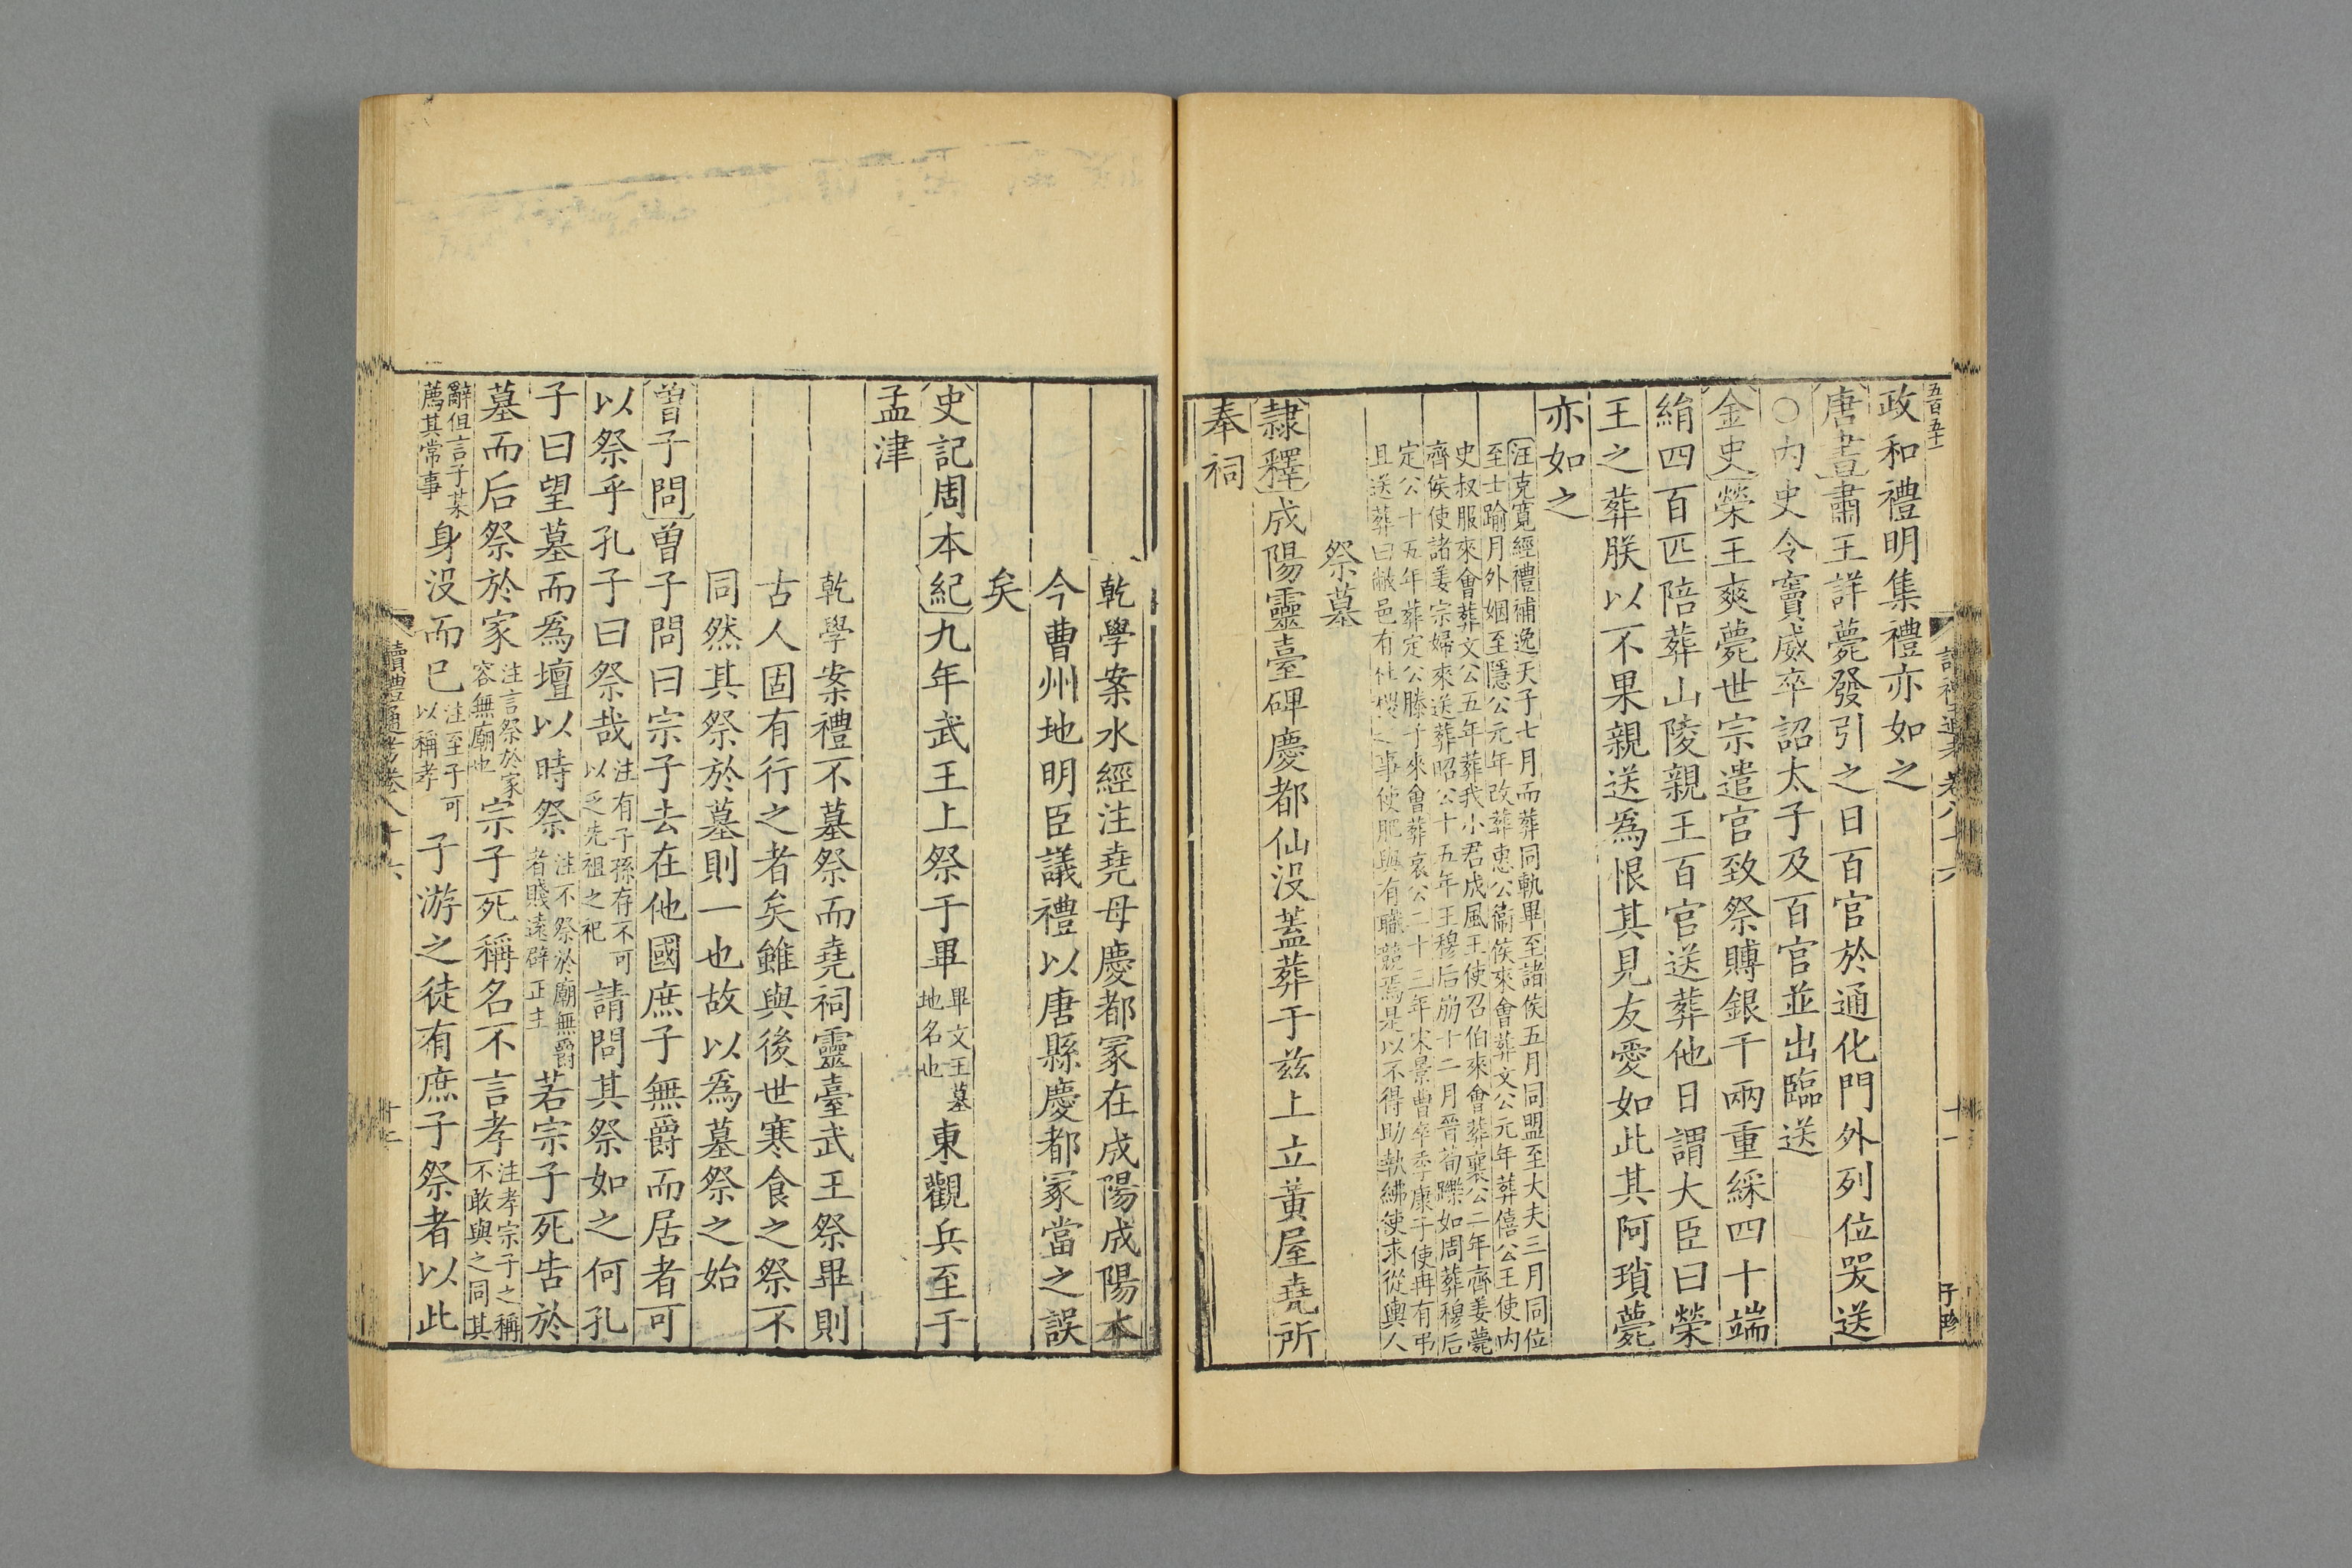 五百五十一
政和禮明集禮亦如之
唐書肅王詳薨發引之日百官於通化門外列位哭送
○內史令竇威卒詔太子及百官並出臨送
金史榮王爽薨世宗遣官致祭賻銀千兩重綵四十端
絹四百匹陪葬山陵親王百官送葬他日謂大臣曰榮
王之葬朕以不果親送為恨其見友愛如此其阿瑣薨
亦如之
汪克寬經禮補逸天子七月而葬同軌畢至諸侯五月同盟至大夫三月同位
至士踰月外姻至隱公元年改葬惠公衞侯來會葬文公元年葬僖公王使內
史叔服來會葬文公五年葬我小君成風王使召伯來會葬襄公二年齊姜薨
齊侯使諸姜宗婦來送葬昭公十五年王穆后崩十二月晉荀躒如周葬穆后
定公十五年葬定公滕子來會葬哀公二十三年宋景曹卒季康子使冉有弔
且送葬曰敝邑有社稷之事使肥與有職競焉是以不得助執紼使求從輿人
祭墓
隸釋成陽靈臺碑慶都仙沒蓋葬于茲上立黃屋堯所
奉祠
讀禮通考卷八十六
十一
子珍
乾學案水經注堯母慶都冢在成陽成陽本
今曹州地明臣議禮以唐縣慶都冢當之誤
矣
史記周本紀九年武王上祭于畢畢文王墓地名也東觀兵至于
孟津
乾學案禮不墓祭而堯祠靈臺武王祭畢則
古人固有行之者矣雖與後世寒食之祭不
同然其祭於墓則一也故以為墓祭之始
曾子問曾子問曰宗子去在他國庶子無爵而居者可
以祭乎孔子曰祭哉注有子孫存不可以乏先祖之祀請問其祭如之何孔
子曰望墓而為壇以時祭注不祭於廟無爵者賤遠辟正主若宗子死告於
墓而后祭於家注言祭於家容無廟也宗子死稱名不言孝注孝宗子之稱不敢與之同其
辭但言子某薦其常事身沒而已注至子可以稱孝子游之徒有庶子祭者以此
讀禮通考卷八十六
十二